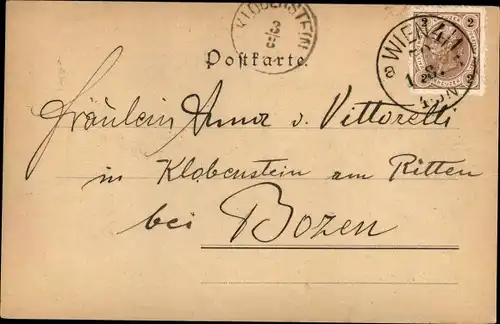 KLOBENSTEIN
3/8
Postkarte.
2 2
WIEN 4/1
2 2
Fräulein Anna v. Vittorelli
in Klobenstein am Ritten
bei Bozen